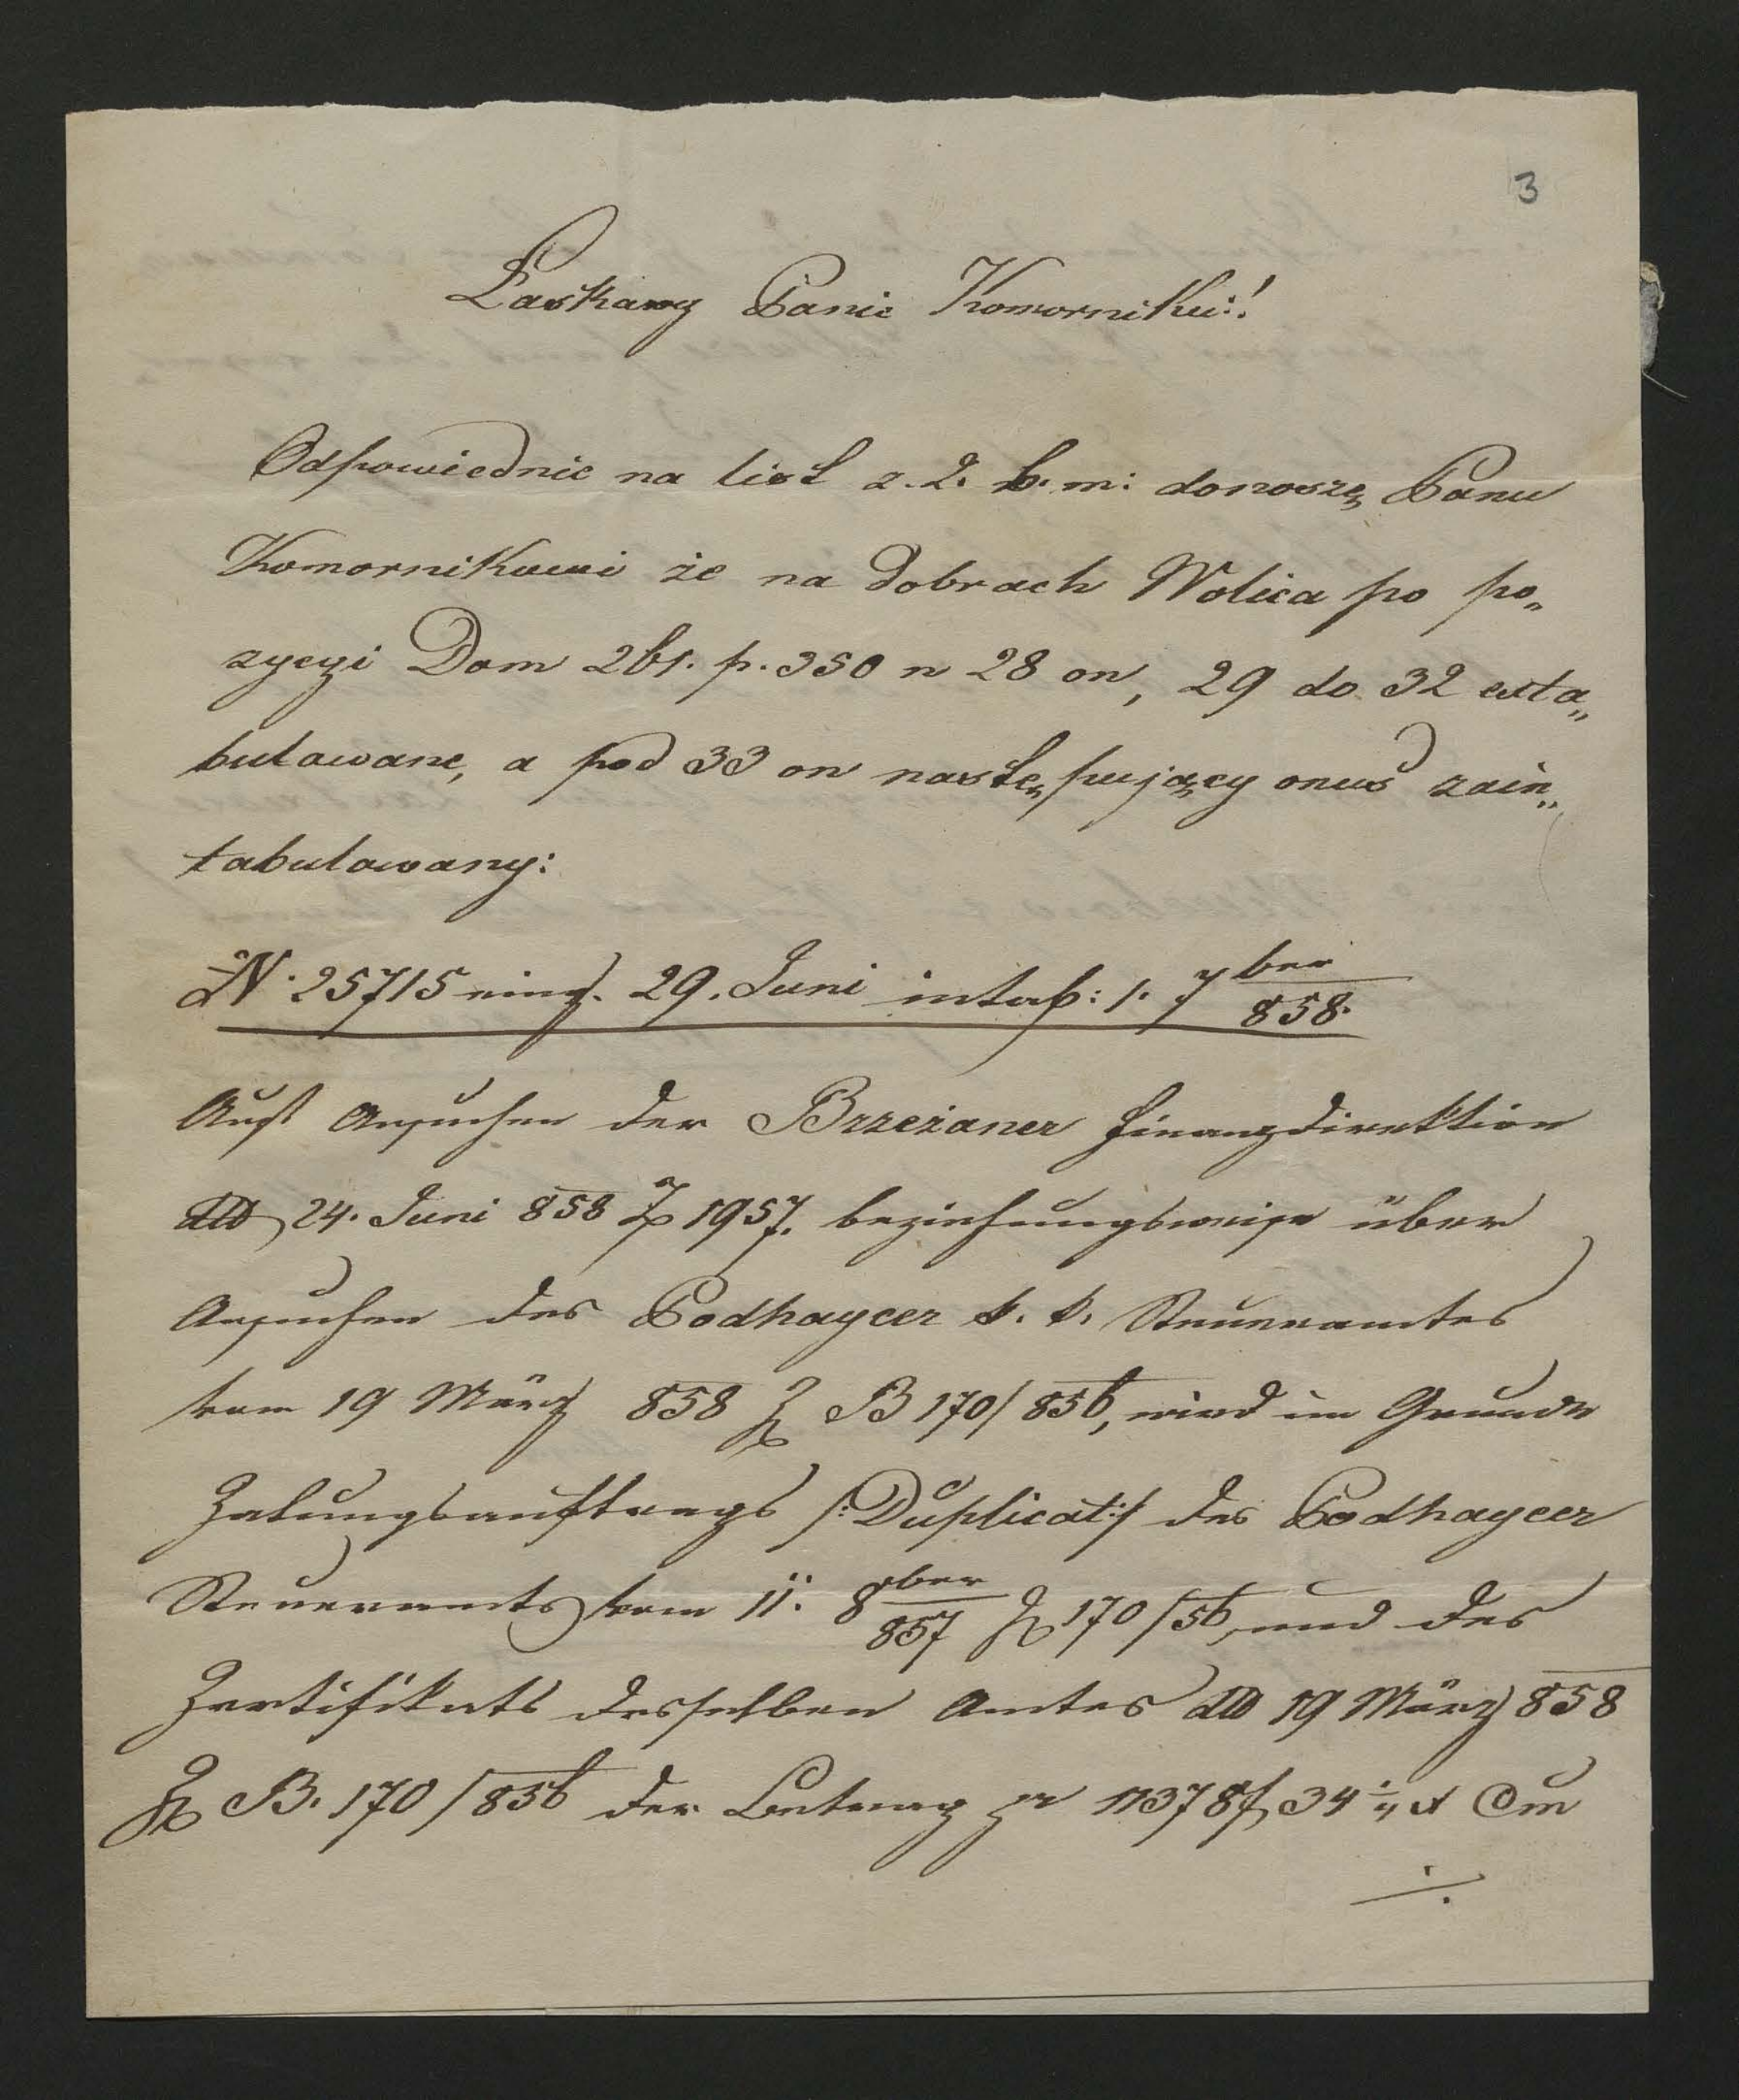 3
Łaskawy Panie Komorniku!
Odpowiednie na list z. 2. b. m: donoszę Panu
Komornikowi że na dobrach Wolica po po„
zycyi Dom 261. p. 350 n 28 on, 29 do 32 exta„
bulowane, a pod 33 on następujący onus zain„
tabulowany:
N. 25715 eing. 29. Juni intab: 1. 7ber 858.
Auf Ansuchen der Brzeżaner Finanzdirektion
ddto 24. Juni 858 Z 1957. beziehungsweise über
Ansuchen des Podhaycer k. k. Steueramtes
vom 19 März 858 Z B 170/856, wird im Grunde
Zalungsauftrags /:Duplicat:/ des Podhaycer
Steueramts vom 11. 8ber 857 Z 170/56, und des
Zertifikats desselben Amtes ddto 19 März 858
Z B. 170/856 der Betrag pr 11378 f 34 x Cm
./.